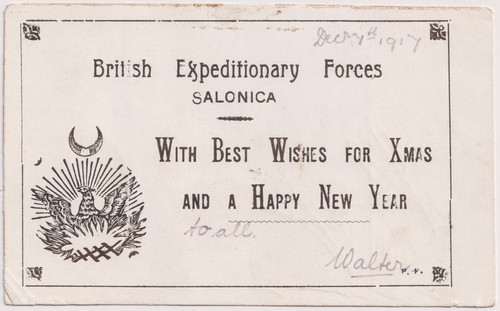 Decr 7th 1917
British Expeditionary Forces
SALONICA
WITH BEST WISHES FOR XMAS
AND A HAPPY NEW YEAR
to all.
Walter